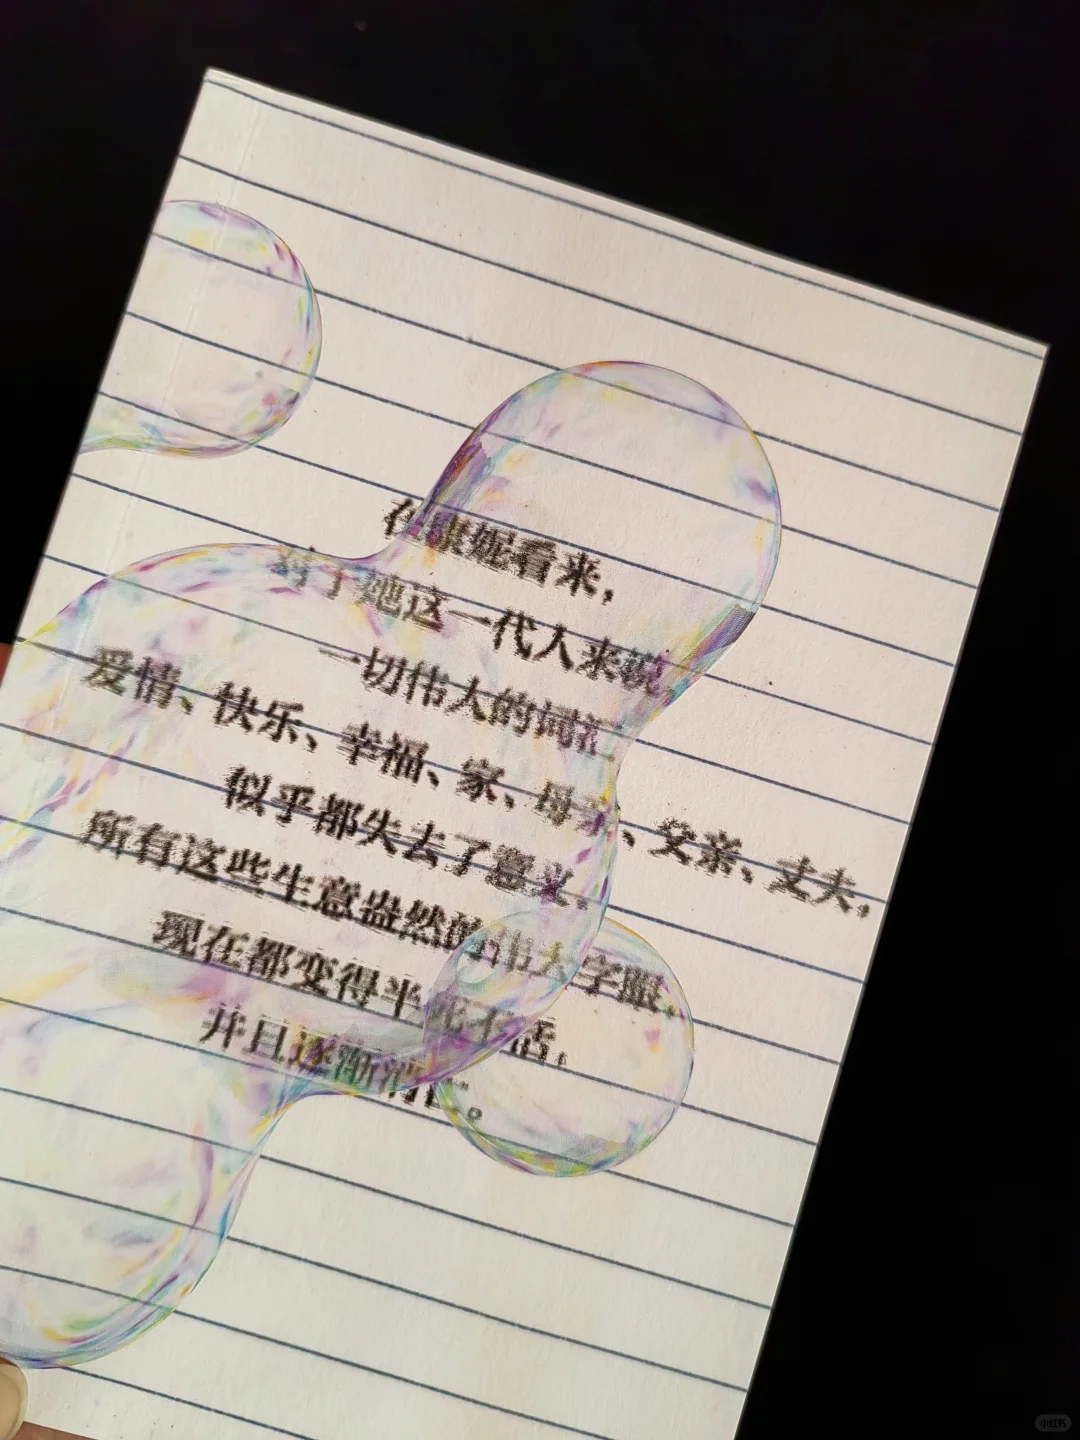 在康妮看来，
对于她这一代人来说，
一切伟大的词汇，
爱情、快乐、幸福、家、母亲、父亲、丈夫，
似乎都失去了意义。
所有这些生意盎然的伟大字眼，
现在都变得半死不活，
并且逐渐消亡。
小红书